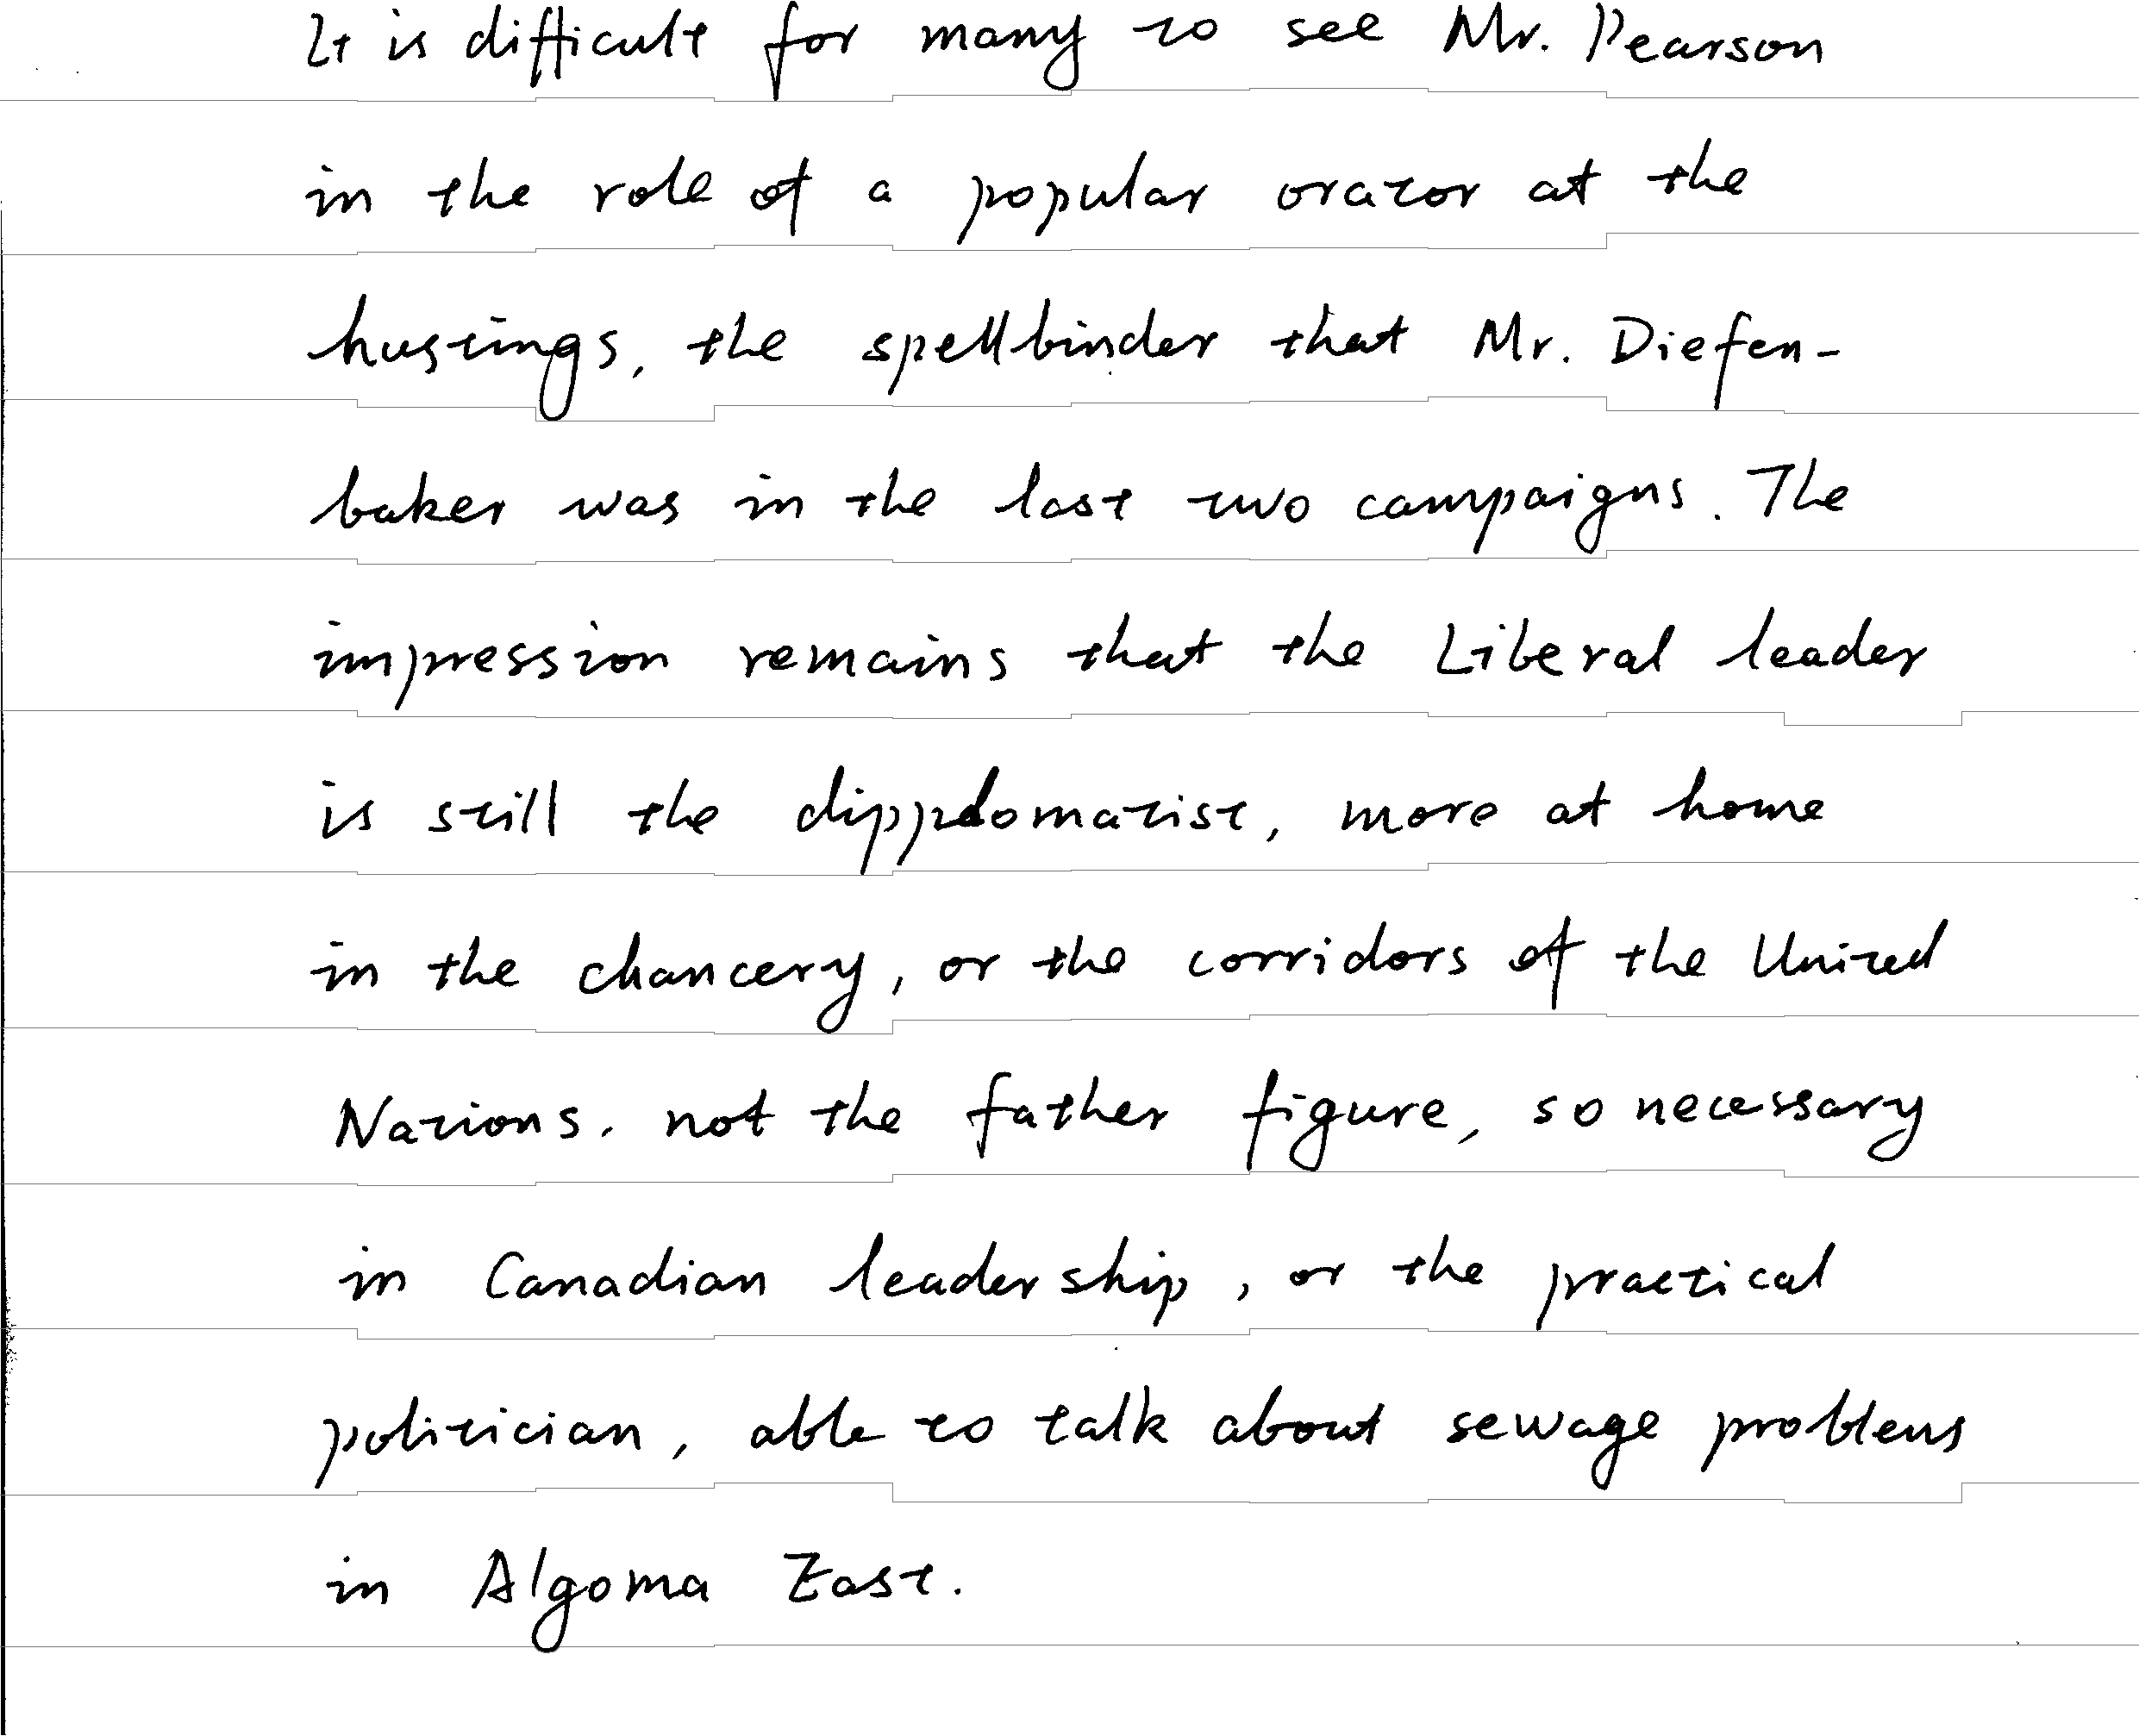 It is difficult for many to see Mr. Pearson
in the role of a popular orator at the
hustings, the spellbinder that Mr. Diefen-
baker was in the last two campaigns. The
impression remains that the Liberal leader
is still the more at home
in the chancery, or the corridors of the United
Nations, not the father figure, so necessary
in Canadian leadership, or the practical
politician, able to talk about sewage problems
in Algoma East.